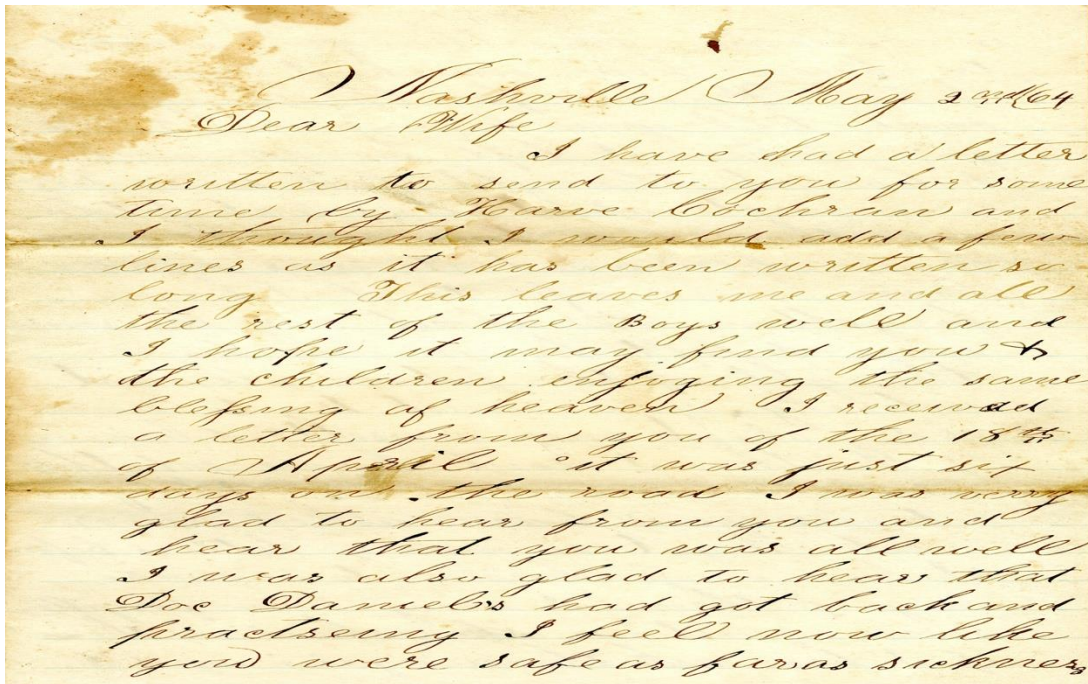 Nashville May 2nd /64
Dear Wife
I have had a letter
written to send to you for some
time by Harve Cochran and
I thought I would add a few
lines as it has been written so
long This leaves me and all
the rest of the Boys well and
I hope it may find you &
the children enjoying the same
blessing of heaven I received
a letter from you of the 18th
of Aprail it was just six
days on the road I was verry
glad to hear from you and
hear that you was all well
I was also glad to hear that
Doc Daniels had got back and
practseing I feel now like
you were safe as far as sickness